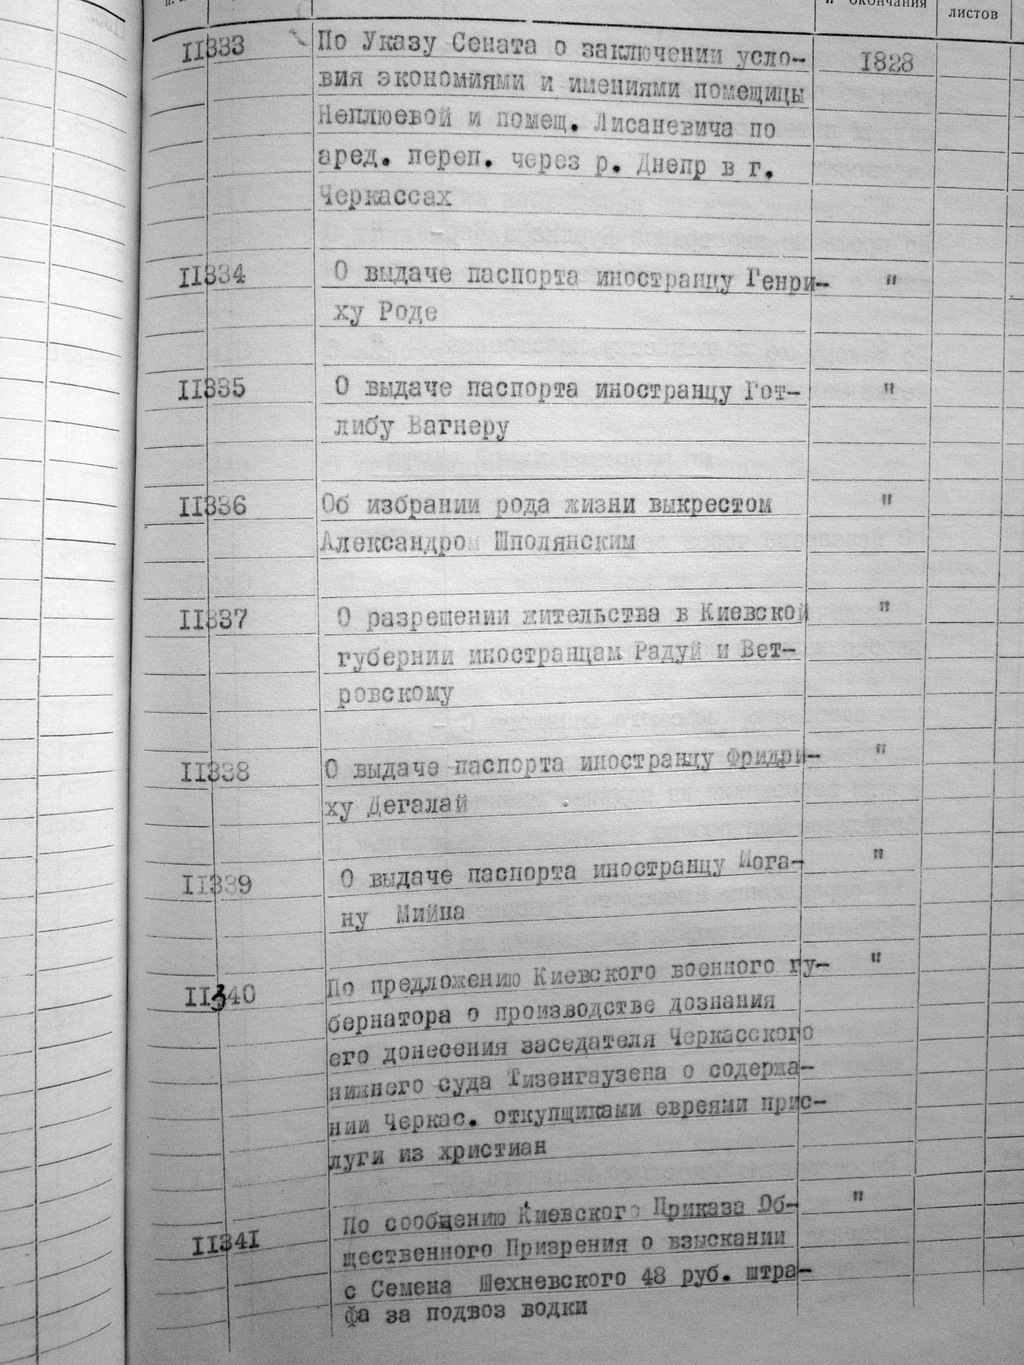 и окончания
листов
11333 По Указу Сената о заключении усло- 1828
вия экономиями и имениями помещицы
Неплюевой и помещ. Лисаневича по
аред. переп. через р. Днепр в г.
Черкассах
11334 О выдаче паспорта иностранцу Генри- "
ху Роде
11335 О выдаче паспорта иностранцу Гот- "
либу Вагнеру
11336 Об избрании рода жизни выкрестом "
Александром Шполянским
11337 О разрешении жительства в Киевской "
губернии иностранцам Радуй и Вет-
ровскому
11338 О выдаче паспорта иностранцу Фридри- "
ху Дегалай
11339 О выдаче паспорта иностранцу Иога- "
ну Мийна
11340 По предложению Киевского военного гу- "
бернатора о производстве дознания
его донесения заседателя Черкасского
нижнего суда Тизенгаузена о содержа-
нии Черкас. откупщиками евреями прис-
луги из христиан
11341 По сообщению Киевского Приказа Об- "
щественного Призрения о взыскании
с Семена Шехневского 48 руб. штра-
фа за подвоз водки